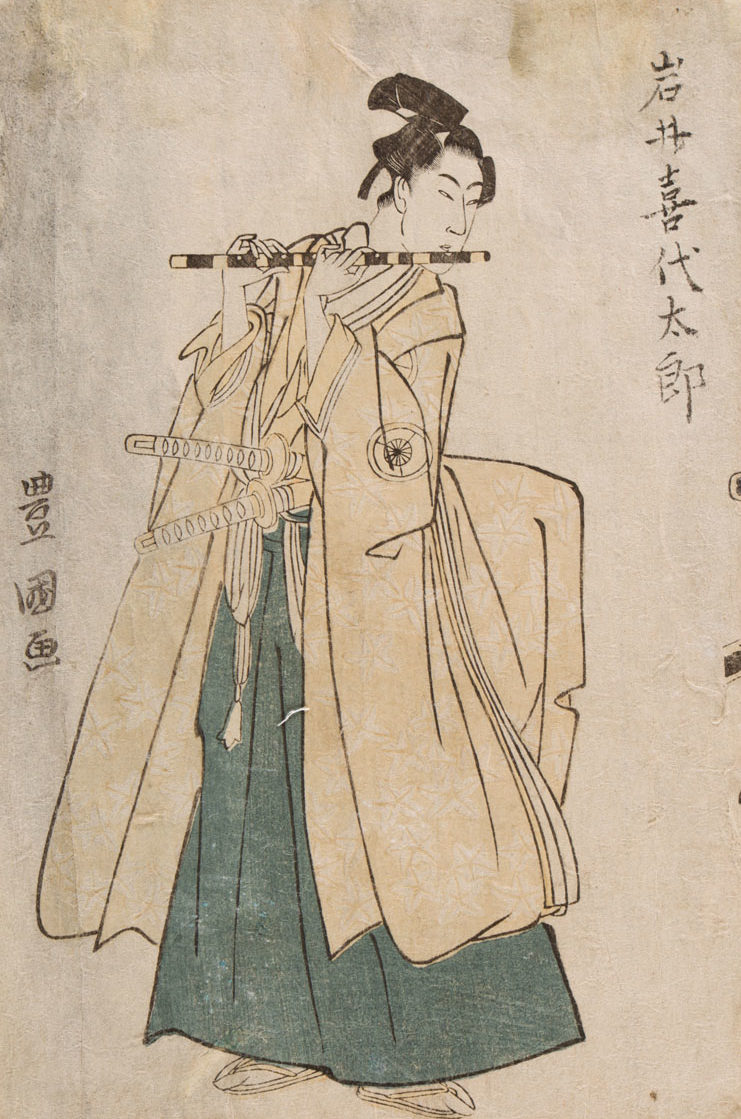 岩井喜代太郎
豊國画